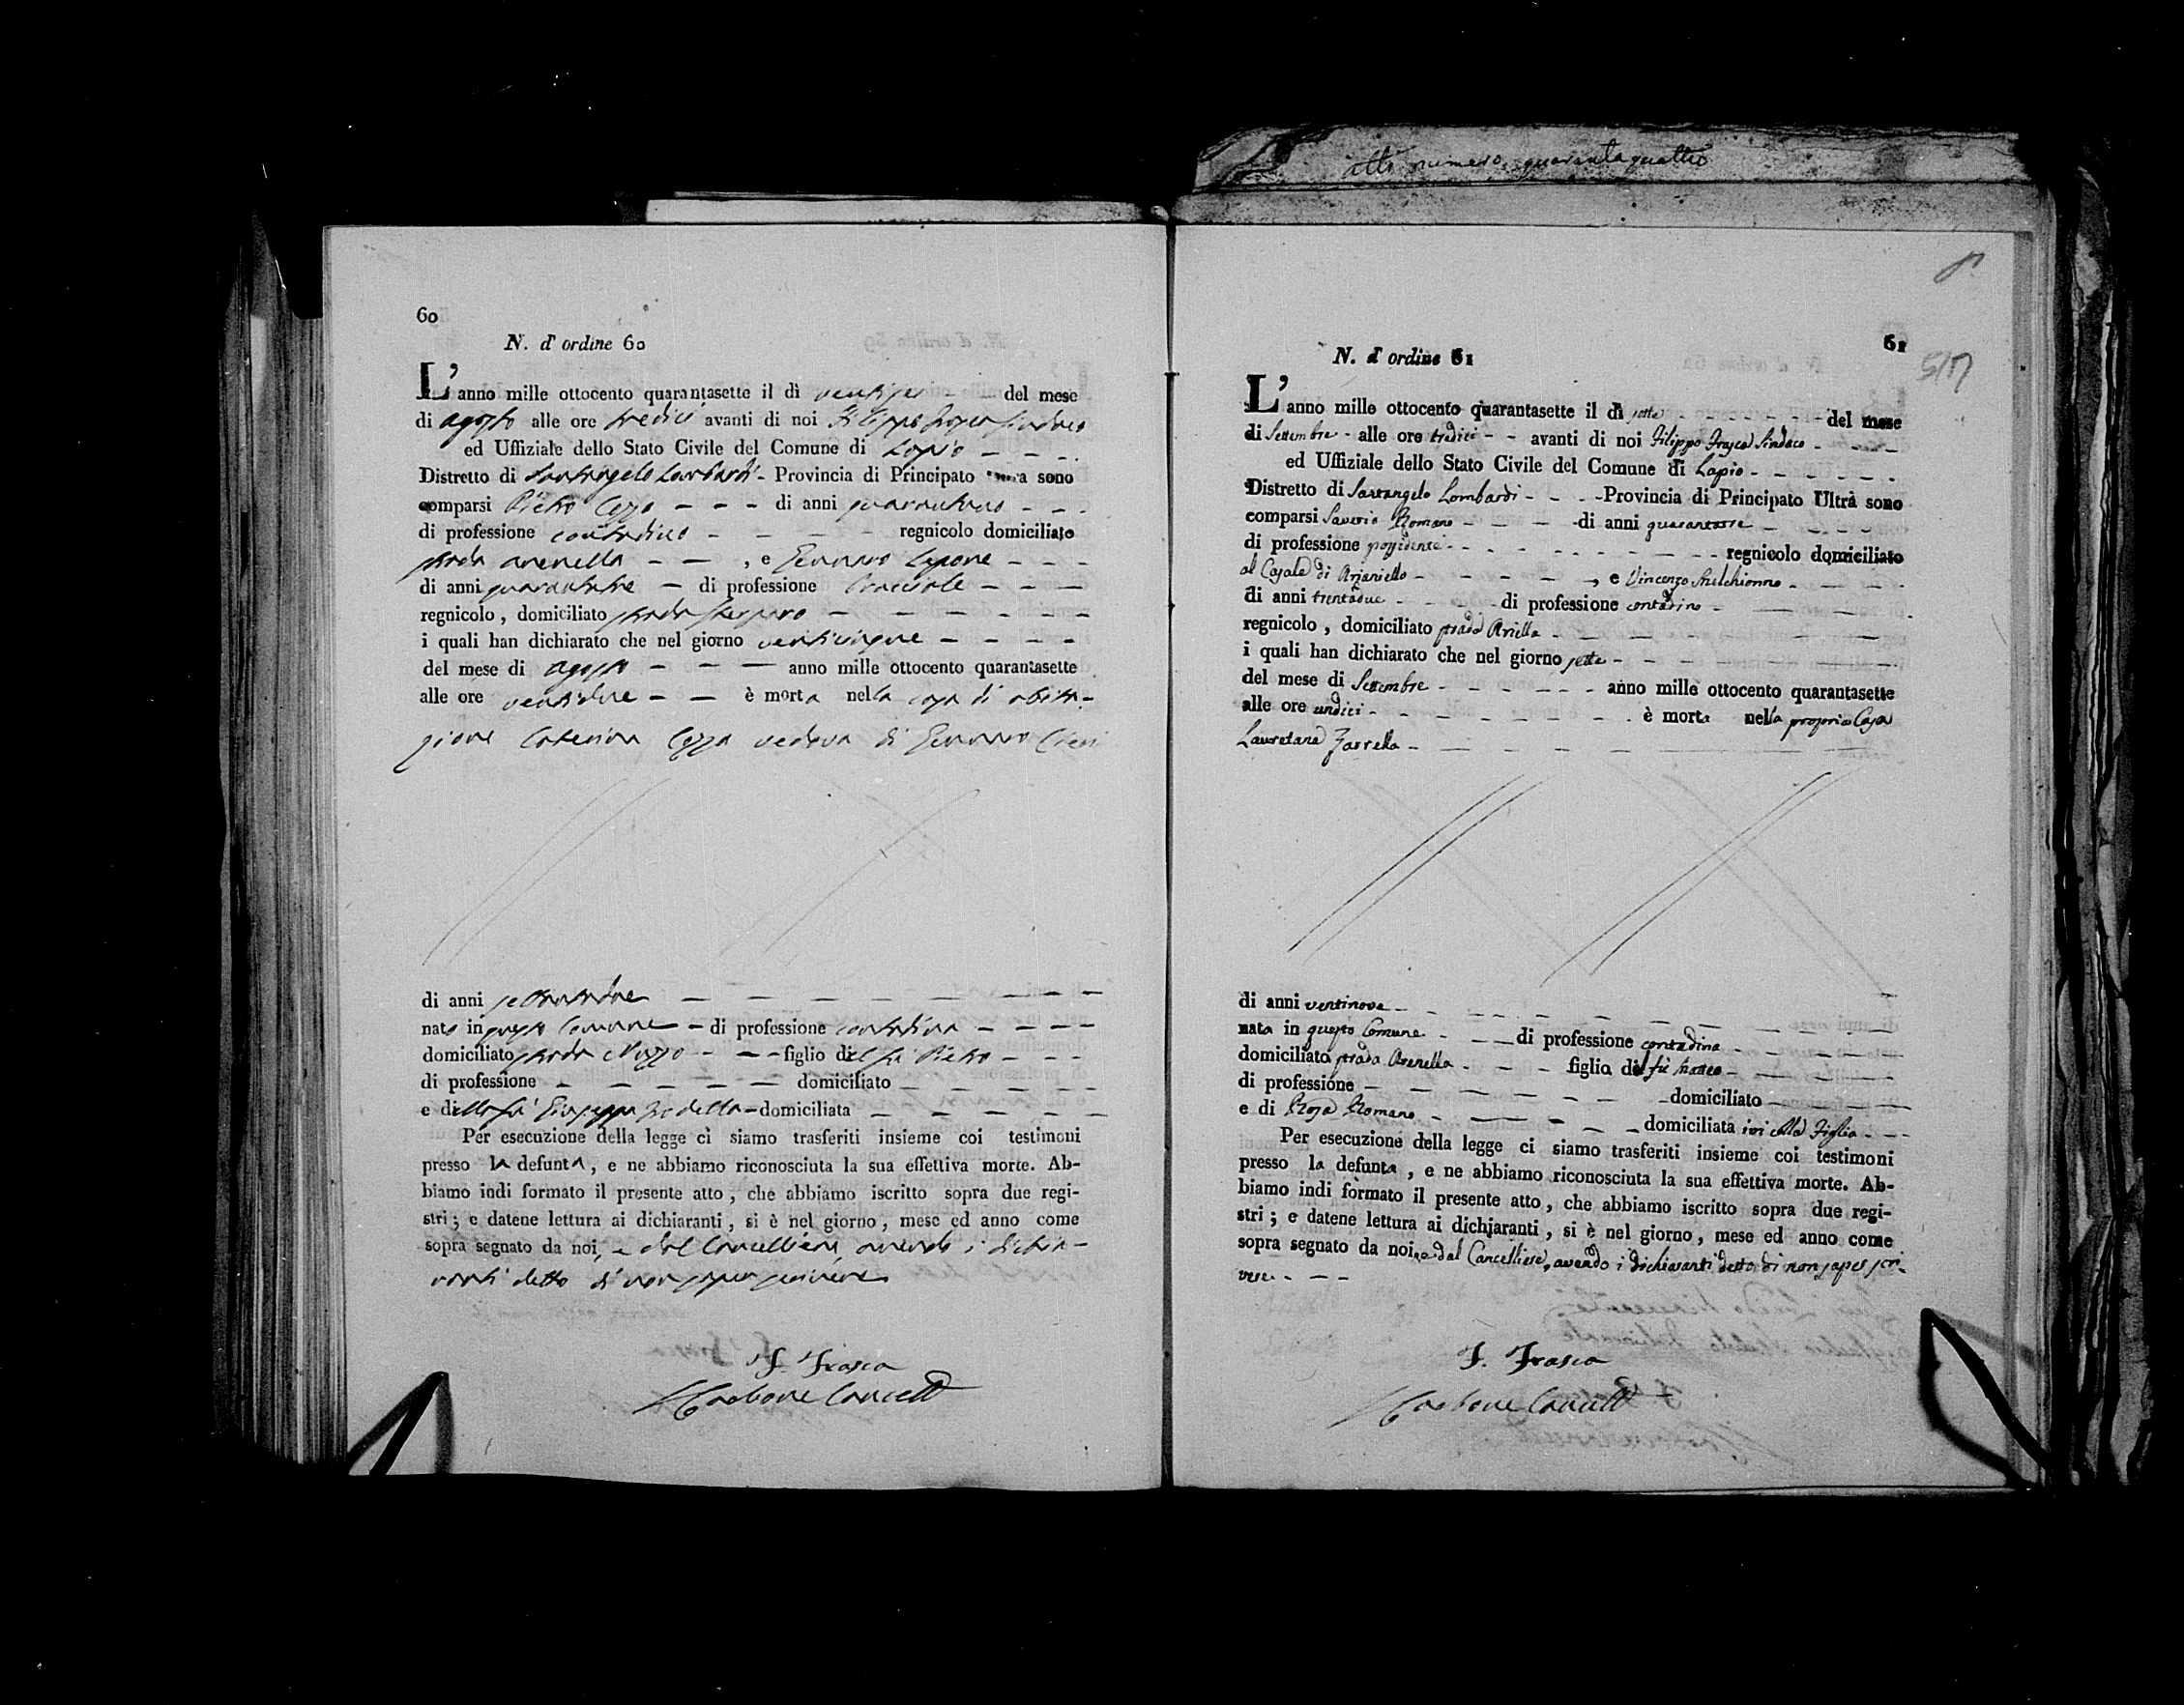 atto numero quarantaquattro
60
N. d' ordine 60
L'anno mille ottocento quarantasette il dì ventisei del mese
di agosto alle ore tredici avanti di noi Filippo Frasca Sindaco
ed Uffiziale dello Stato Civile del Comune di Lapio
Distretto di Santangelo Lombardi - Provincia di Principato sono
comparsi Pietro di anni
di professione contadino regnicolo domiciliato
strada arenella , e Gennaro
di anni quarantatre di professione Bracciale
regnicolo, domiciliato strada
i quali han dichiarato che nel giorno venticinque
del mese di agosto anno mille ottocento quarantasette
alle ore ventidue è morta nella casa di abita-
zione Caterina vedova di Gennaro
di anni settantadue
nato in questo Comune - di professione contadina
domiciliato strada figlio del fu Pietro
di professione domiciliato
e della fu Giuseppa - domiciliata
Per esecuzione della legge ci siamo trasferiti insieme coi testimoni
presso la defunta, e ne abbiamo riconosciuta la sua effettiva morte. Ab-
biamo indi formato il presente atto, che abbiamo iscritto sopra due regi-
stri; e datene lettura ai dichiaranti, si è nel giorno, mese ed anno come
sopra segnato da noi, e dal Cancelliere, avendo i dichia-
ranti detto di non saper scrivere
F. Frasca
Carbone Cancell
61
N. d' ordine 61
L'anno mille ottocento quarantasette il dì sette del mese
di Settembre - alle ore tredici - - avanti di noi Filippo Frasca Sindaco
ed Uffiziale dello Stato Civile del Comune di Lapio
Distretto di Santangelo Lombardi - Provincia di Principato Ultra sono
comparsi Saverio Romano di anni quarantatre
di professione possidente regnicolo domiciliato
al Casale di Arianiello , e Vincenzo
di anni trentadue di professione contadino
regnicolo, domiciliato strada Ariella
i quali han dichiarato che nel giorno sette
del mese di Settembre anno mille ottocento quarantasette
alle ore undici è morta nella propria Casa
Lauretana Zarrella
di anni ventinove
nata in questo Comune di professione contadina
domiciliata strada Arenella figlia del fù
di professione domiciliato
e di Rosa Romano domiciliata ivi colla Figlia
Per esecuzione della legge ci siamo trasferiti insieme coi testimoni
presso la defunta, e ne abbiamo riconosciuta la sua effettiva morte. Ab-
biamo indi formato il presente atto, che abbiamo iscritto sopra due regi-
stri; e datene lettura ai dichiaranti, si è nel giorno, mese ed anno come
sopra segnato da noi, e dal Cancelliere, avendo i dichiaranti detto di non saper scri-
vere
F. Frasca
Carbone Cancell